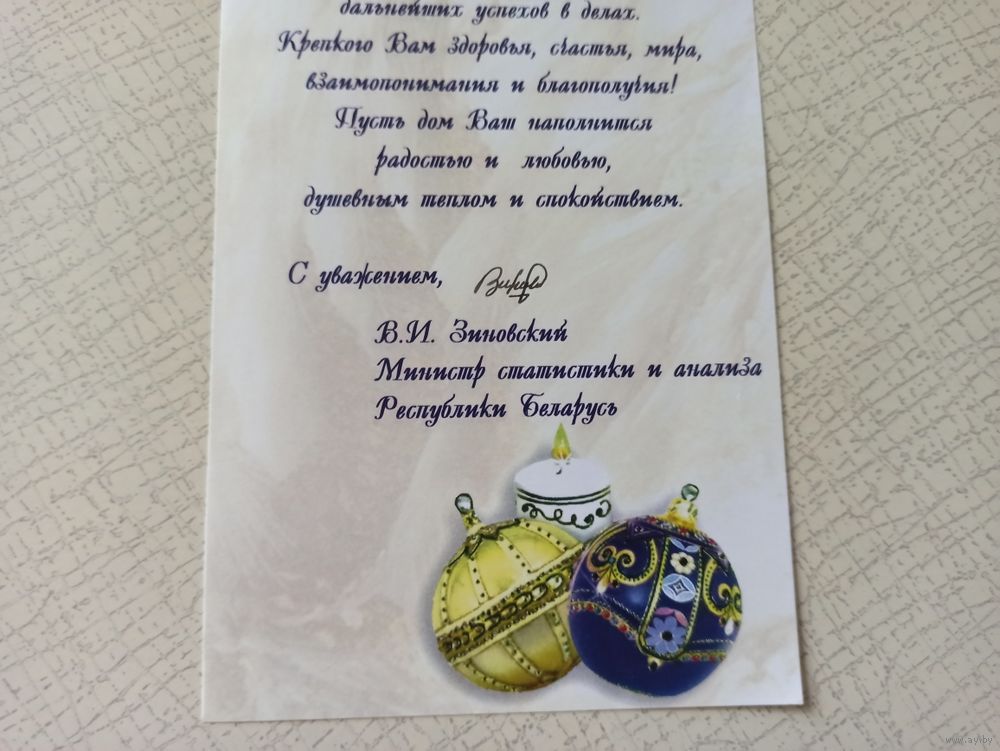 дальнейших успехов в делах.
Крепкого Вам здоровья, счастья, мира,
взаимопонимания и благополучия!
Пусть дом Ваш наполнится
радостью и любовью,
душевным теплом и спокойствием.
С уважением,
В.И. Зиновский
Министр статистики и анализа
Республики Беларусь
www.ay.by